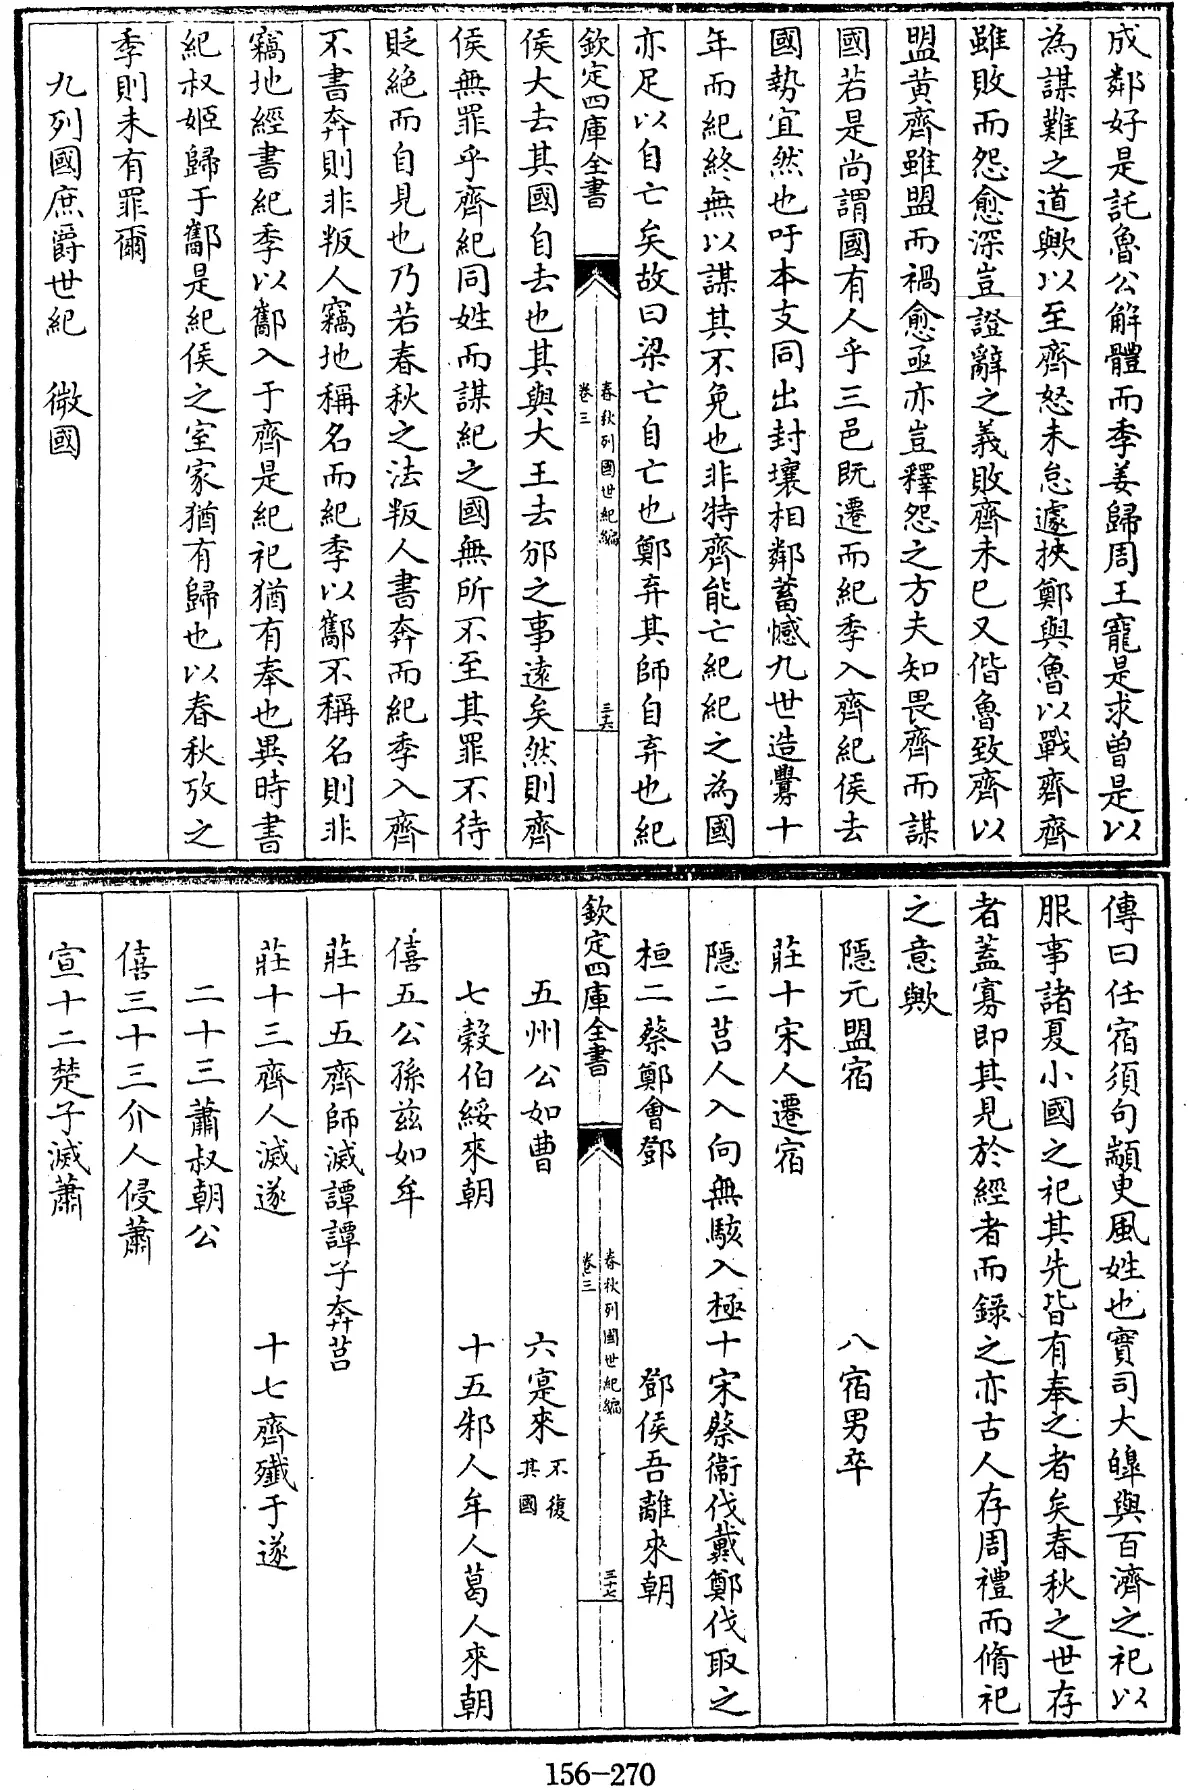 成鄰好是託魯公解體而季姜歸周王寵是求曽是以
為謀難之道歟以至齊怒未怠遽挾鄭與魯以戰齊齊
雖敗而怨愈深豈證辭之義敗齊未已又偕魯致齊以
盟黄齊雖盟而禍愈亟亦豈釋怨之方夫知畏齊而謀
國若是尚謂國有人乎三邑既遷而紀季入齊紀侯去
國勢宜然也吁本支同出封壤相鄰蓄憾九世造釁十
年而紀終無以謀其不免也非特齊能亡紀紀之為國
亦足以自亡矣故曰梁亡自亡也鄭弃其師自弃也紀
欽定四庫全書
春秋列國世紀編
卷三
三十六
侯大去其國自去也其與大王去邠之事逺矣然則齊
侯無罪乎齊紀同姓而謀紀之國無所不至其罪不待
貶絶而自見也乃若春秋之法叛人書奔而紀季入齊
不書奔則非叛人竊地稱名而紀季以酅不稱名則非
竊地經書紀季以酅入于齊是紀祀猶有奉也異時書
紀叔姬歸于酅是紀侯之室家猶有歸也以春秋攷之
季則未有罪爾
九列國庶爵世紀　微國
傳曰任宿須句顓臾風姓也實司大皥與百濟之祀以
服事諸夏小國之祀其先皆有奉之者矣春秋之世存
者蓋寡即其見於經者而錄之亦古人存周禮而脩祀
之意歟
隱元盟宿　八宿男卒
莊十宋人遷宿
隱二莒人入向無駭入極十宋蔡衞伐戴鄭伐取之
桓二蔡鄭會鄧　鄧侯吾離來朝
欽定四庫全書
春秋列國世紀編
卷三
三十七
五州公如曹　六寔來不復其國
七榖伯綏來朝　十五邾人牟人葛人來朝
僖五公孫兹如牟
莊十五齊師滅譚譚子奔莒
莊十三齊人滅遂　十七齊殱于遂
二十三蕭叔朝公
僖三十三介人侵蕭
宣十二楚子滅蕭
156-270